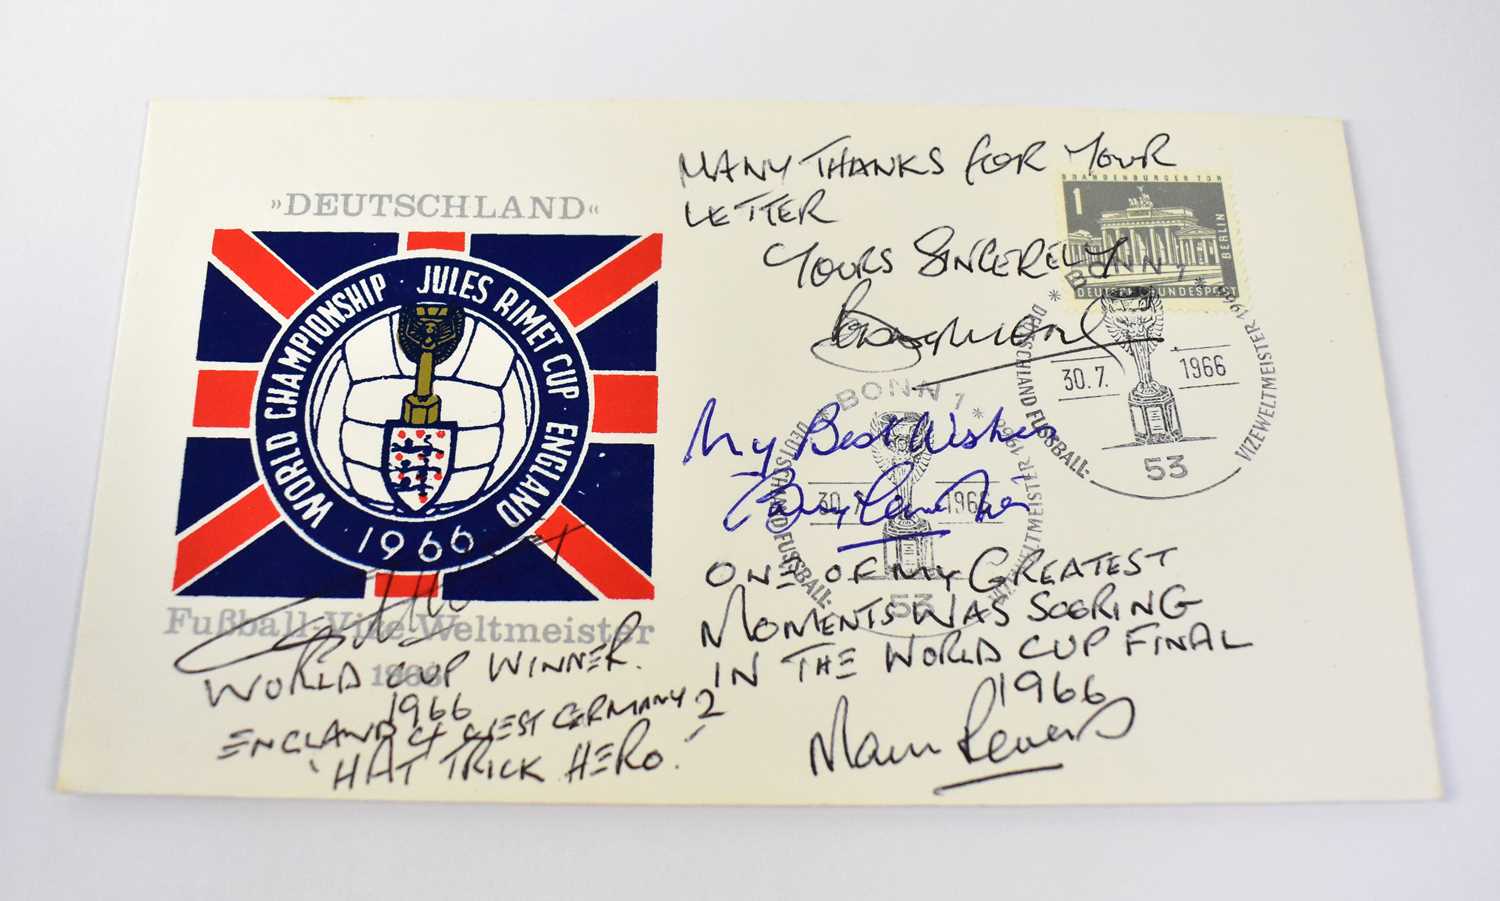 »DEUTSCHLAND«
WORLD CHAMPIONSHIP · JULES RIMET CUP · ENGLAND
1966
Fußball-Vize-Weltmeister
1966
WORLD CUP WINNER.
1966
ENGLAND 4 WEST GERMANY 2
'HAT TRICK HERO.'
MANY THANKS FOR YOUR
LETTER
YOURS SINCERELY
BRANDENBURGER TOR
1
BERLIN
DEUTSCHE BUNDESPOST
BONN 1
DEUTSCHLAND FUSSBALL-
VIZEWELTMEISTER 1966
30.7.
1966
53
My Best Wishes
BONN 1
DEUTSCHLAND FUSSBALL-
VIZEWELTMEISTER 1966
30.7.
1966
53
ONE OF MY GREATEST
MOMENTS WAS SCORING
IN THE WORLD CUP FINAL
1966